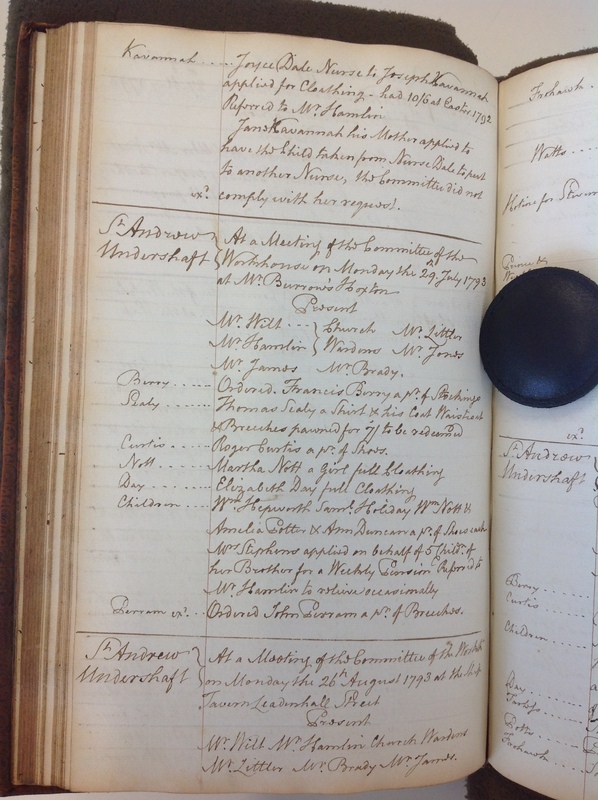 Kavannah .... Joyce Dale Nurse to Joseph Kavannah
applied for Cloathing - had 10/6 at Easter 1792
Referred to Mr. Hamlin
Jane Kavannah his Mother applied to
have the Child taken from Nurse Dale to put
to another Nurse, the Committee did not
exd. comply with her request.
St. Andrew Undershaft } At a Meeting of the Committee of the
Workhouse on Monday the 29th July 1793
at Mr. Burrow's Hoxton
Present
Mr. Wilt ... } Church Mr. Littler
Mr. Hamlin } Wardens Mr. Jones
Mr. James Mr. Brady.
Berry ..... Ordered. Francis Berry a pr. of Stockings
Sealy ...... Thomas Sealy a Shirt & his Coat Waistcoat
& Breeches pawned for 7/ to be redeemed
Curtis .... Roger Curtis a pr. of Shoes.
Nott .... Martha Nott a Girl full Cloathing
Day ..... Elizabeth Day full Cloathing
Children .... Wm. Hepworth Saml. Holiday Wm. Nott &
Amelia Potter & Ann Duncan a pr. of Shoes each
Mrs Stephens applied on behalf of 5 Child. of
her Brother for a Weekly Pension Referred to
Mr. Hamlin to relieve occasionally
Perram exd. .. Ordered John Perram a pr. of Breeches.
St. Andrew Undershaft } At a Meeting of the Committee of the Workhe.
on Monday the 26th August 1793 at the Ship
Tavern Leadenhall Street
Present
Mr. Wilt Mr. Hamlin Church Wardens
Mr. Littler Mr. Brady Mr. James.
Watts ....
exd.
St. Andrew
Undershaft
Berry ....
Curtis
Children ....
Day ....